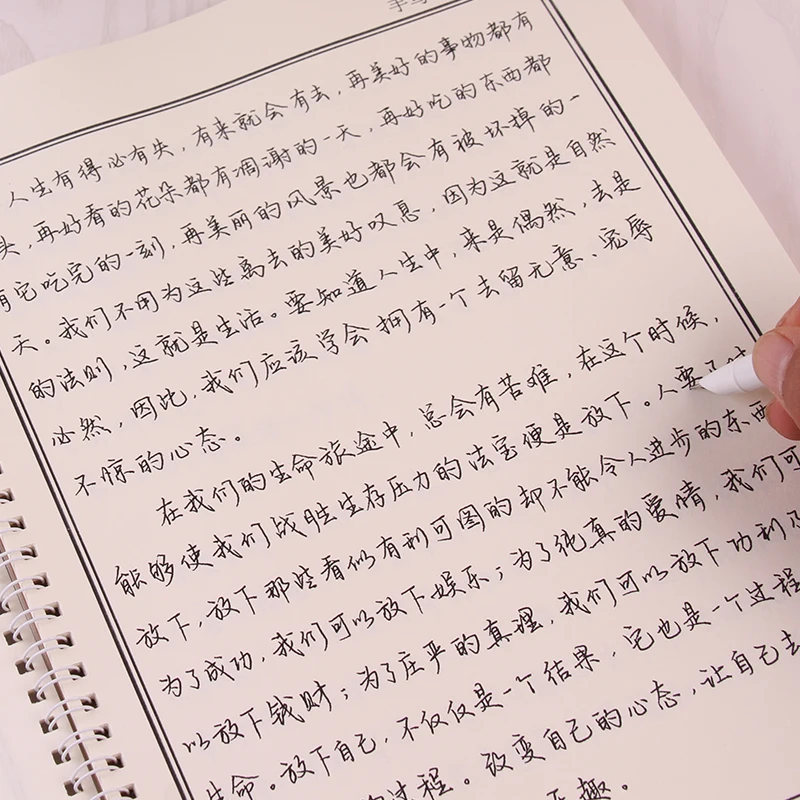 人生有得必有失，有来就会有去，再美好的事物都有
头，再好看的花朵都有凋谢的一天，再好吃的东西都
有它吃完的一刻，再美丽的风景也都会有被坏掉的一
天。我们不用为这些离去的美好叹息，因为这就是自然
的法则，这就是生活。要知道人生中，来是偶然，去是
必然，因此，我们应该学会拥有一个去留无意、宠辱
不惊的心态。
在我们的生命旅途中，总会有苦难，在这个时候，
能够使我们战胜生存压力的法宝便是放下。人要
放下，放下那些看似有利可图的却不能令人进步的东西
为了成功，我们可以放下娱乐；为了纯真的爱情，我们可
以放下钱财；为了庄严的真理，我们可以放下功利
生命。放下自己，不仅仅是一个结果，它也是一个过程
过程。改变自己的心态，让自己去
趣。